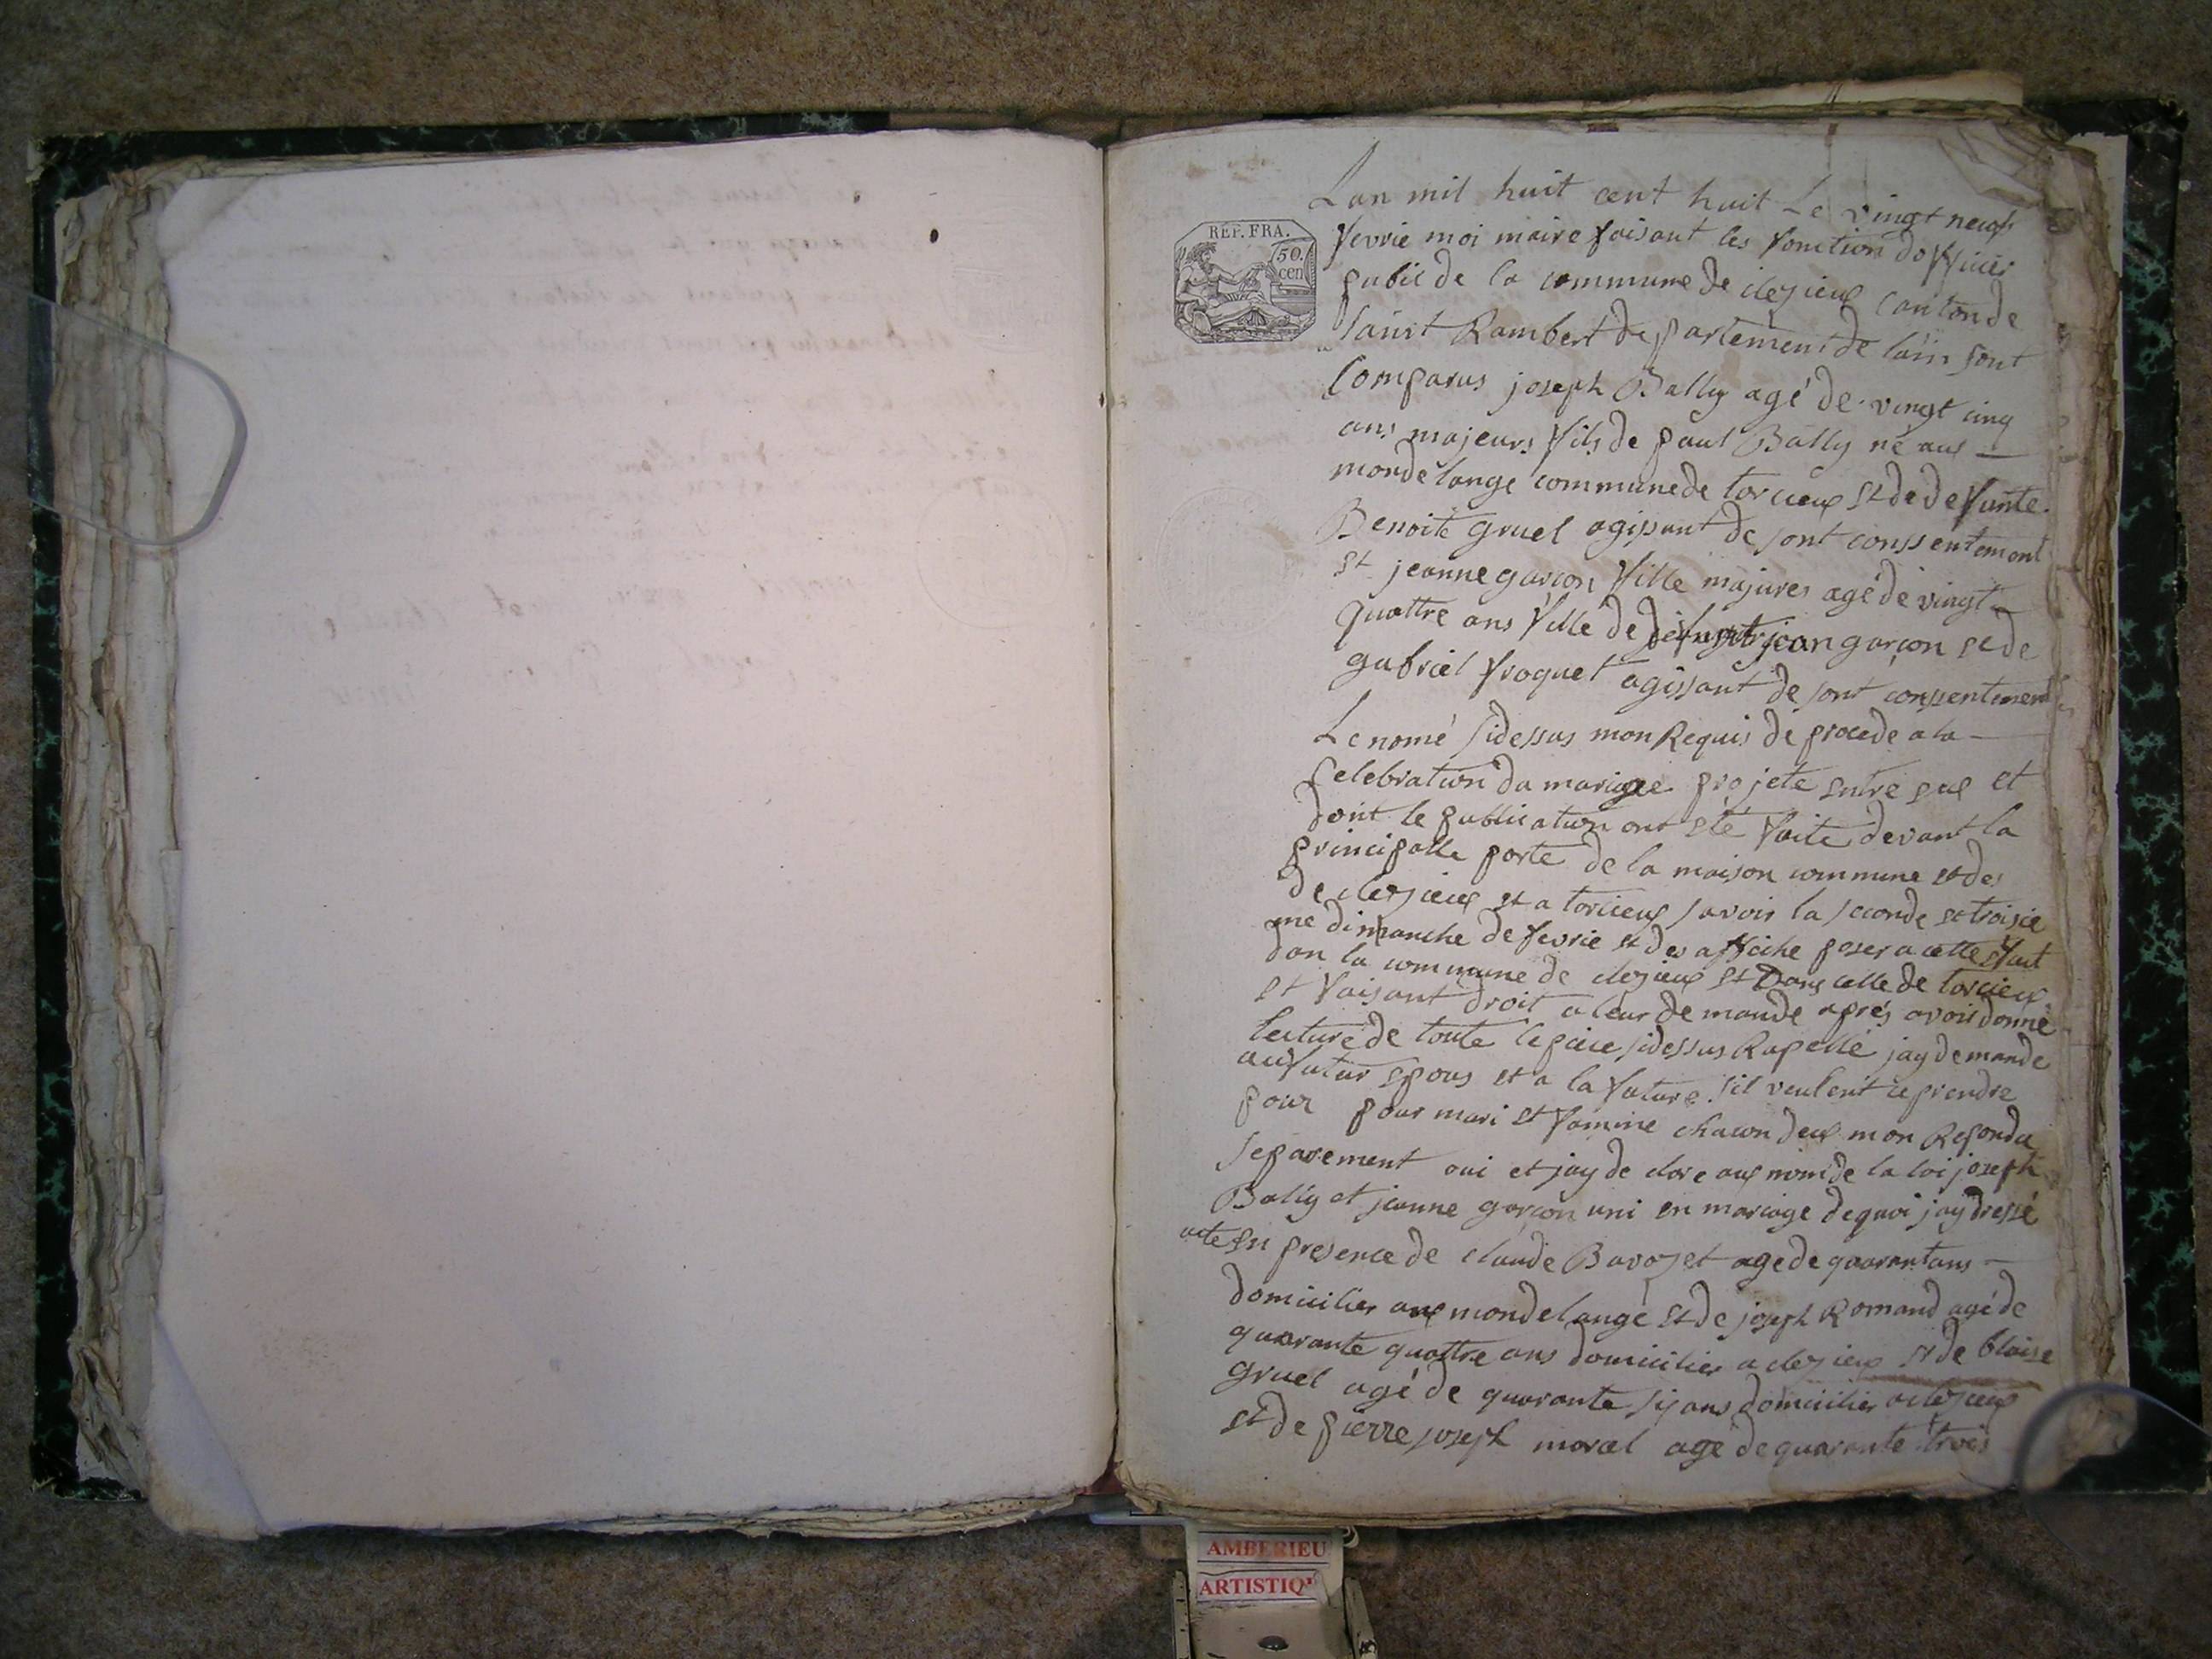 Lan mil huit cent huit Le vingt neuf
fevrie moi maire faisant les fonction dofficier
REP. FRA.
50.
cen
public de la commune de clezieux canton de
saint Rambert departement de lain sont
Comparus joseph Bally agé de vingt cinq
ans majeurs fils de paul Bally né aux
mondelange commune de torcieux et de defunte
Benoite gruel agissant de sont conssentement
et jeanne garçon fille majeures agé de vingt
quattre ans fille de defunt jean garçon et de
gabriel froquet agissant de sont conssentement
Le nomé sidessus mon Requis de procede a la
celebration du mariage projete entre eux et
dont le publication ont eté faite devant la
principalle porte de la maison commune et des
de clezieux et a torcieux savoir la seconde et troisie
me dimanche de fevrie et des affiche poser a cette
dan la commune de clezieux et Dans celle de torcieux
et faisant droit a leur demande aprés avoir donné
lecture de toute le piece sidessus Rapellé jay demandé
au futur epous et a la future sil veulent ce prendre
pour pour mari et famme chacun deux mon Repondu
separement oui et jay de clore aux nom de la loi joseph
Bally et jeanne garçon uni en mariage de quoi jay dressé
acte en presence de claude Bavozet age de quarantans
domicilier aux mondelange et de joseph Romand agé de
quarante quattre ans domicilier a clezieux et de blaise
gruel agé de quarante six ans domicilier a clezieux
et de pierre joseph morel agé de quarante trois
AMBERIEU
ARTISTIQ